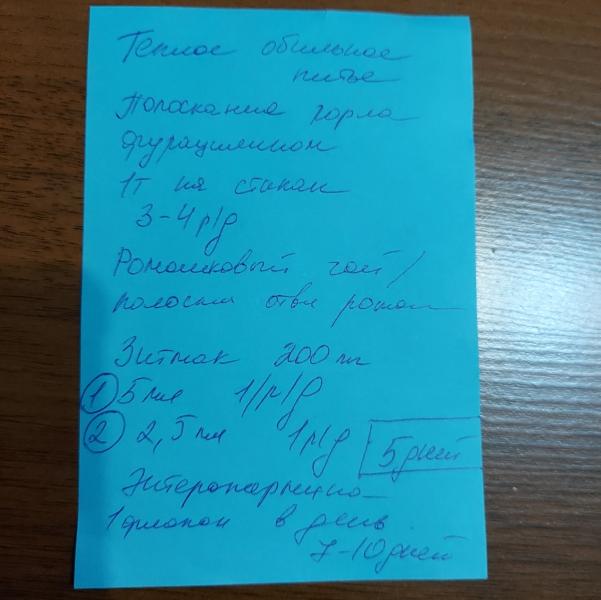 Теплое обильное
питье
Полоскание горла
фурацилином
1т на стакан
3-4 р/д
Ромашковый чай/
полоскан отва ромаш
Зитмак 200 мг
① 5 мл 1/р/д
② 2,5 мл 1р/д 5 дней
1 флакон в день
7-10 дней